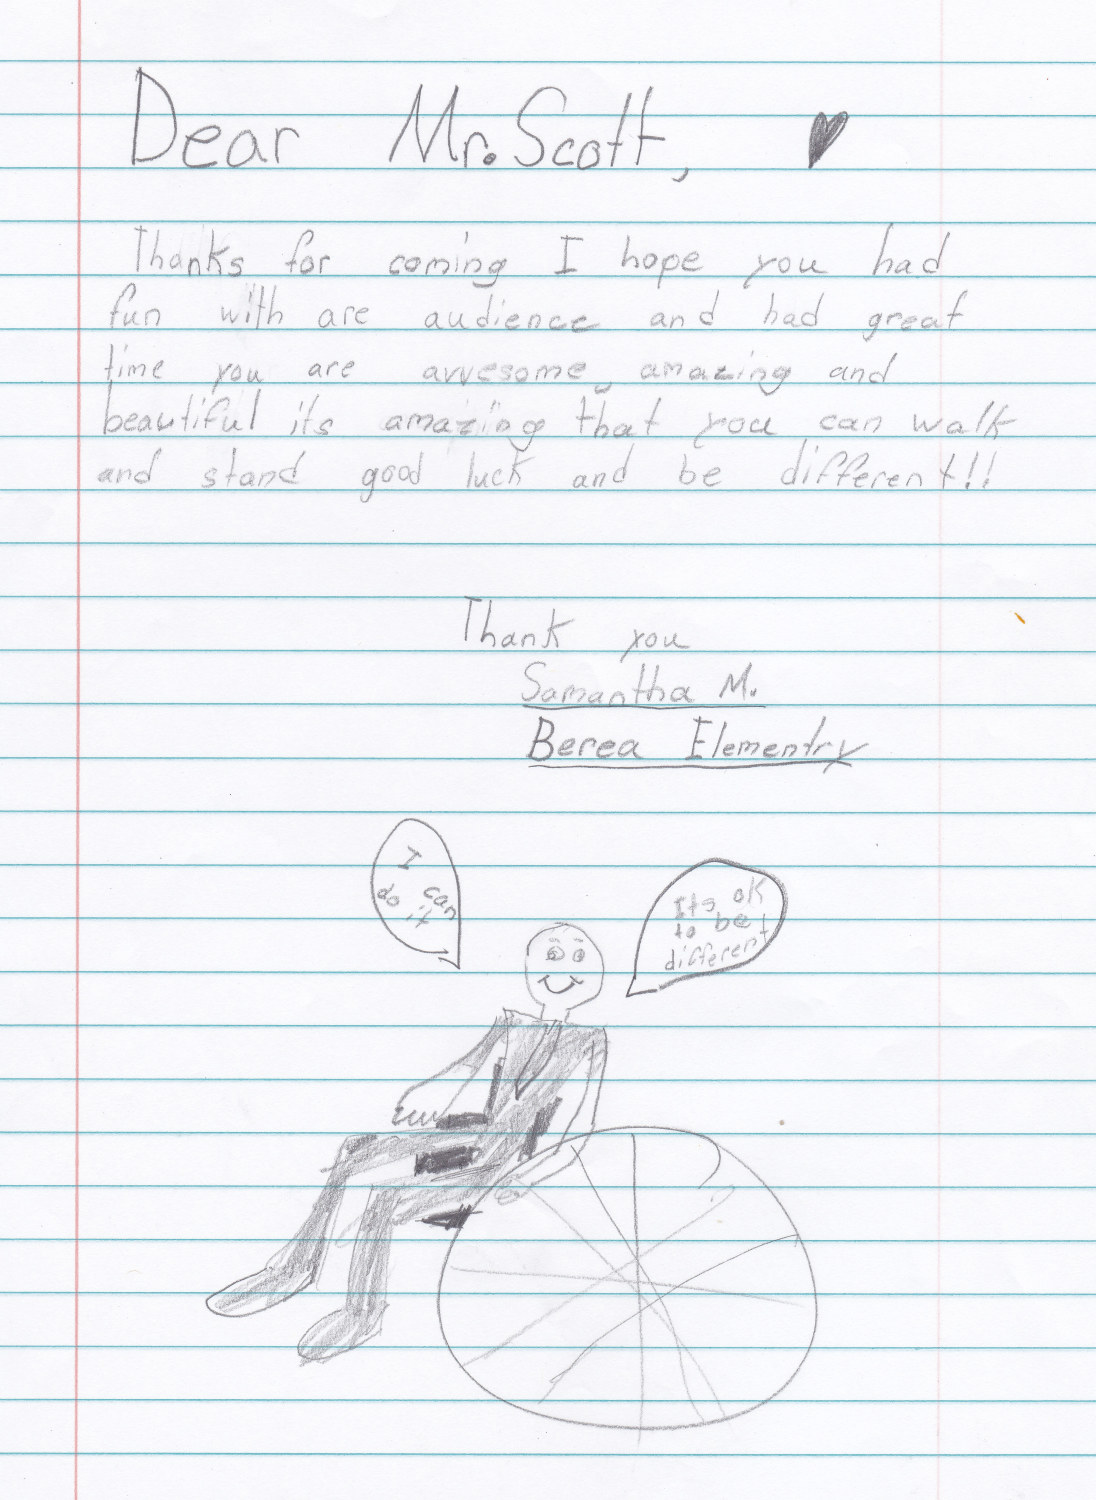 Dear Mr. Scott,
Thanks for coming I hope you had
fun with are audience and had great
time you are awesome, amazing and
beautiful its amazing that you can walk
and stand good luck and be different!!
Thank you
Samantha M.
Berea Elementry
I
do can
it
Its ok
to be
different